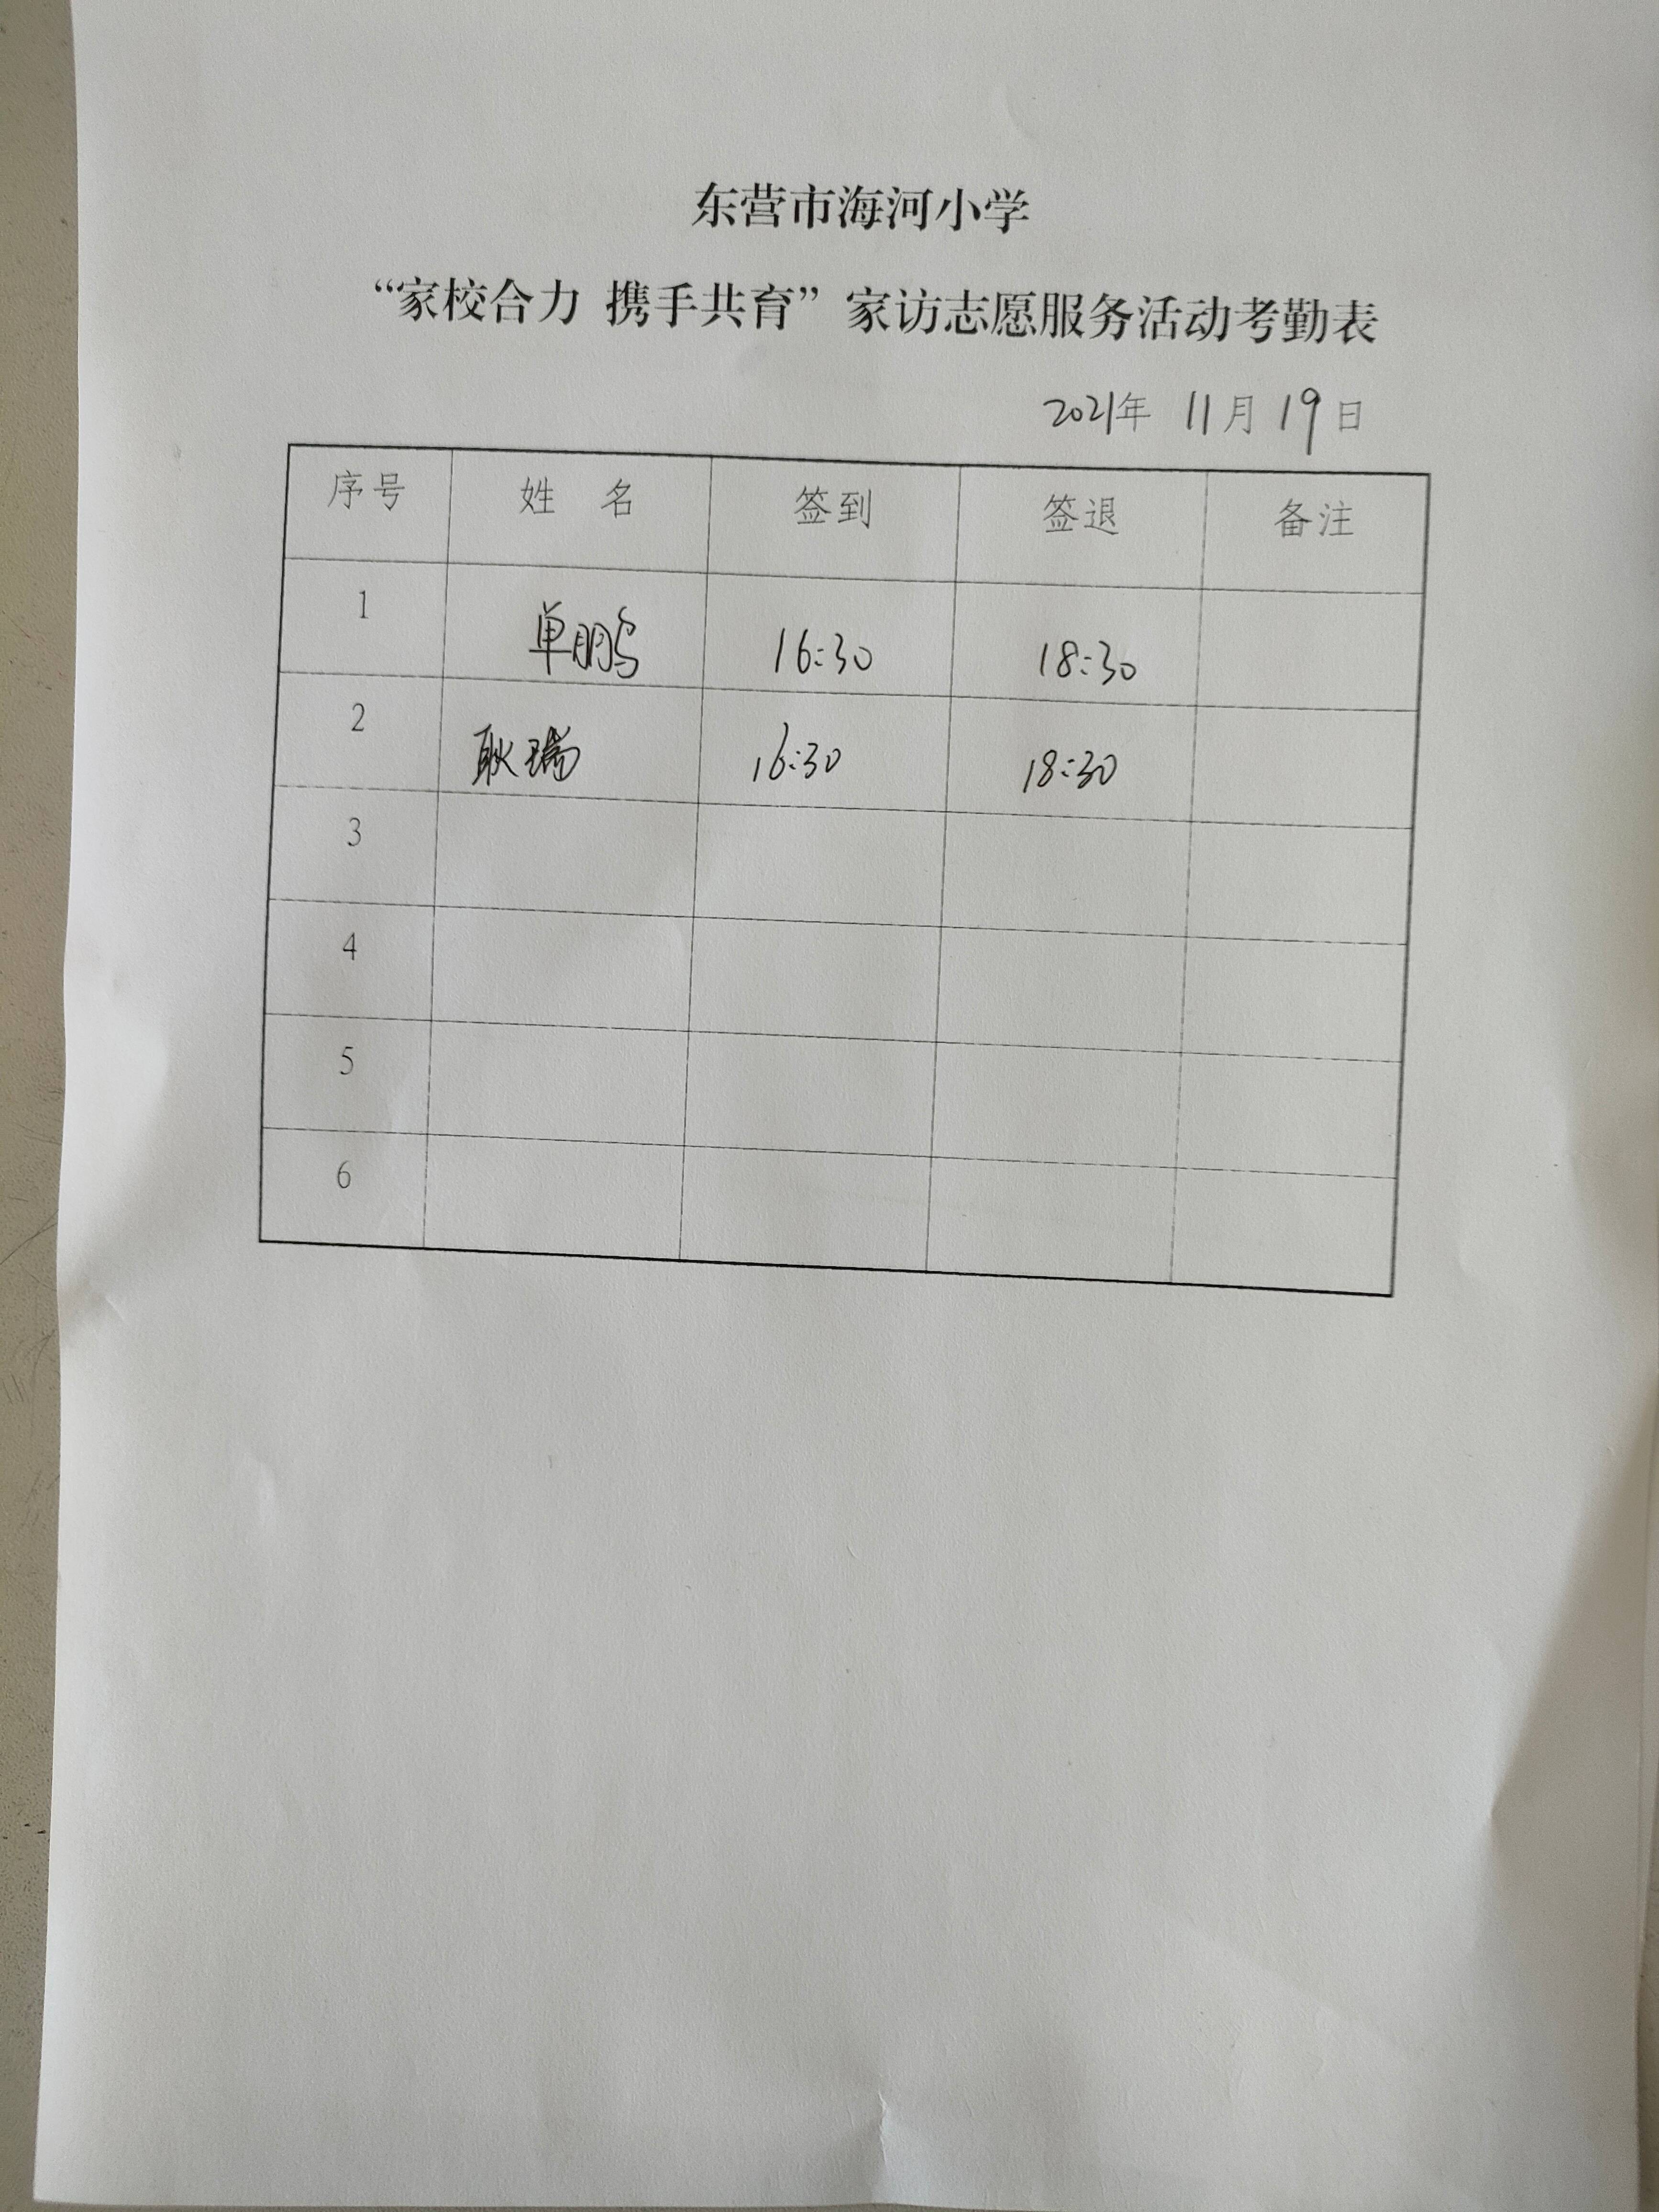 东营市海河小学
“家校合力 携手共育”家访志愿服务活动考勤表
2021年 11月19日
序号 姓 名 签到 签退 备注
1 单鹏 16:30 18:30
2 耿瑞 16:30 18:30
3
4
5
6